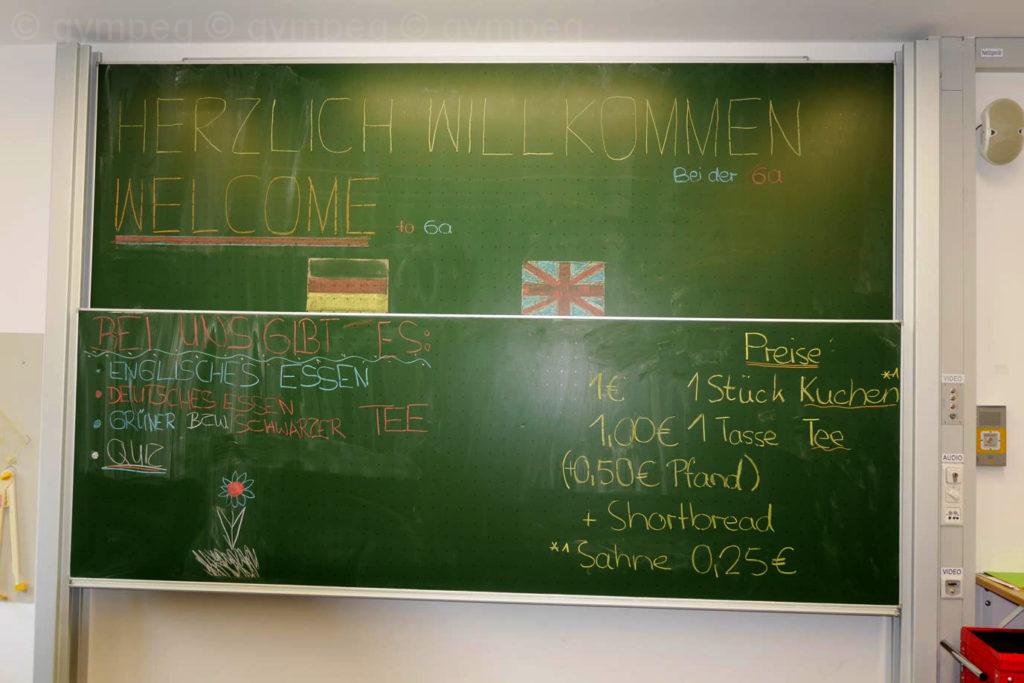 © gympeg © gympeg © gympeg
HERZLICH WILLKOMMEN
Bei der 6a
WELCOME to 6a
BEI UNS GIBT ES:
• ENGLISCHES ESSEN
• DEUTSCHES ESSEN
• GRÜNER BZW. SCHWARZER TEE
• QUIZ
Preise
1€ 1 Stück Kuchen *1
1,00€ 1 Tasse Tee
(+0,50€ Pfand)
+ Shortbread
*1 Sahne 0,25€
VIDEO
AUDIO
VIDEO